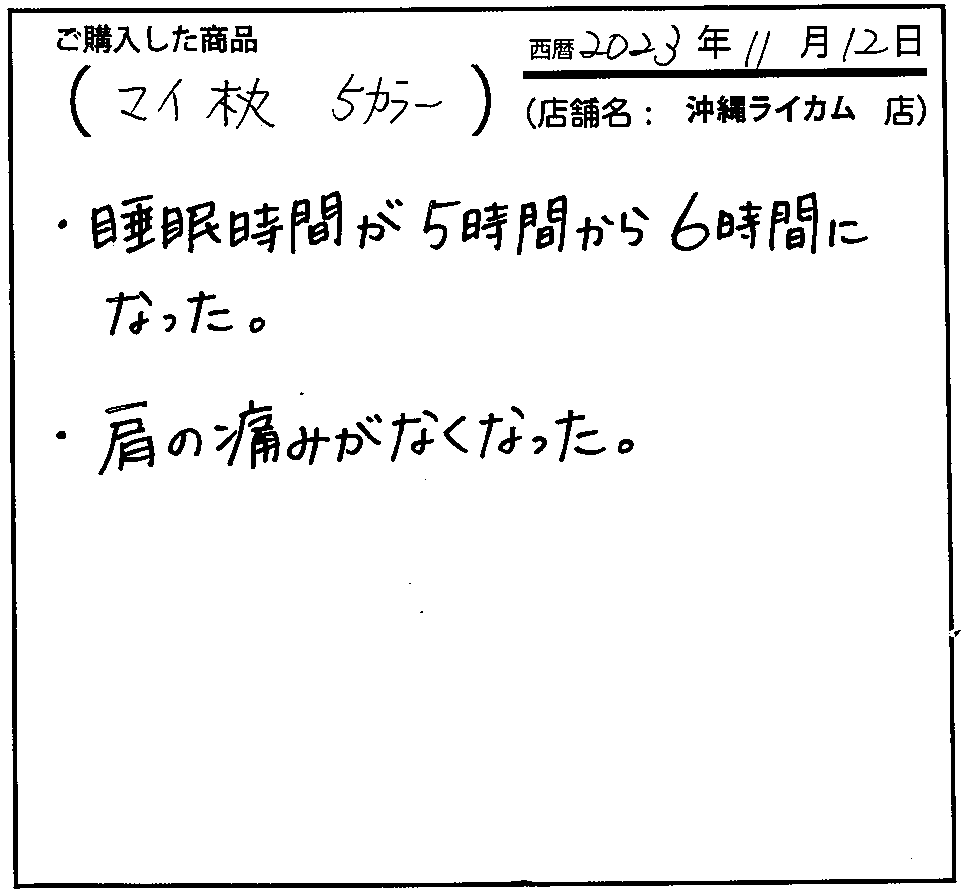 ご購入した商品
西暦2023年11月12日
(マイ枕 5カラー)
(店舗名: 沖縄ライカム 店)
・睡眠時間が5時間から6時間に
なった。
・肩の痛みがなくなった。